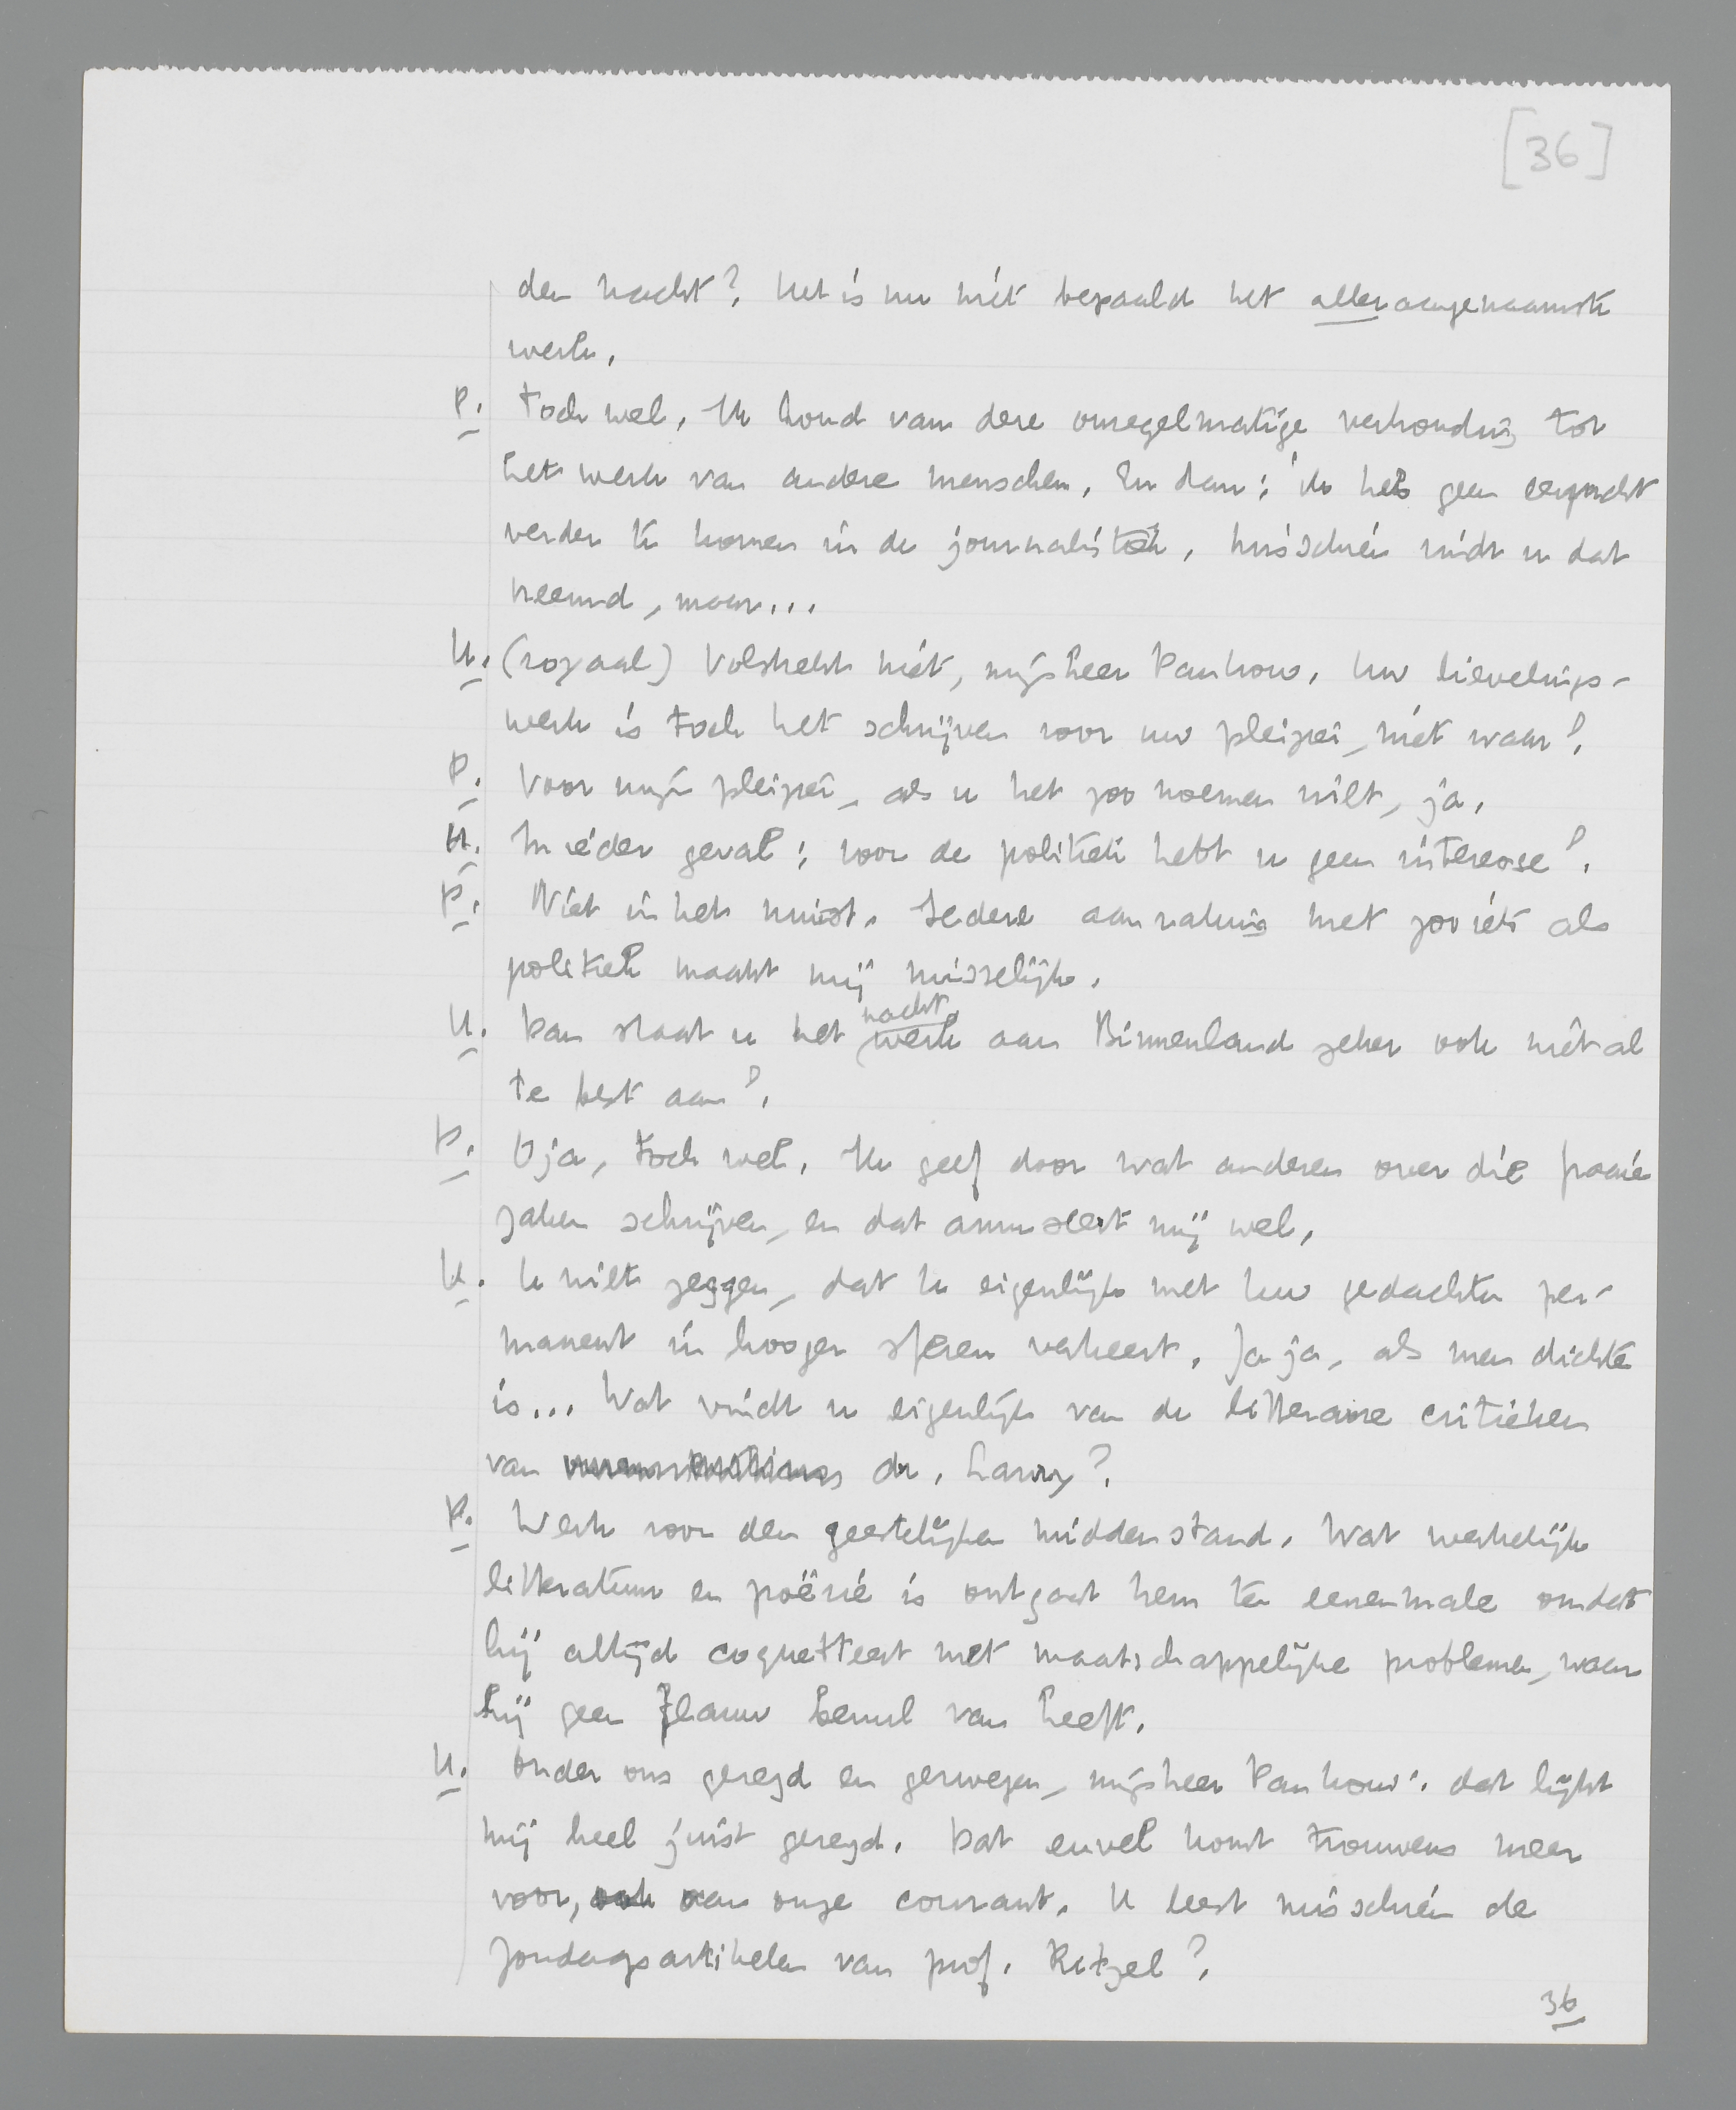 [36]
den nacht? Het is nu niet bepaald het alleraangenaamste
werk.
P. Toch wel. Ik houd van deze onregelmatige verhouding tot
het werk van andere menschen. En dan: ik heb geen eerzucht
verder te komen in de journalistiek. Misschien vindt u dat
vreemd, maar...
U. (royaal) Volstrekt niet, mijnheer Pankouw. Uw lievelings-
werk is toch het schrijven voor uw pleizier, niet waar?
P. Voor mijn pleizier, als u het zoo noemen wilt, ja.
U. In ieder geval: voor de politiek hebt u geen interesse?
P. Niet in het minst. Iedere aanraking met zooiets als
politiek maakt mij misselijk.
U. Dan staat u het nachtwerk aan Binnenland zeker ook niet al
te best aan?
P. O ja, toch wel. Ik geef door wat anderen over die fraaie
zaken schrijven, en dat amuseert mij wel.
U. U wilt zeggen, dat U eigenlijk met Uw gedachten per-
manent in hooger sferen verkeert. Ja ja, als men dichter
is... Wat vindt u eigenlijk van de litteraire critieken
van dr. Larry?
P. Werk voor den geestelijken middenstand. Wat werkelijk
litteratuur en poëzie is ontgaat hem ten eenenmale omdat
hij altijd coquetteert met maatschappelijke problemen, waar
hij geen flauw benul van heeft.
U. Onder ons gezegd en gezwegen, mijnheer Pankouw: dat lijkt
mij heel juist gezegd. Dat euvel komt trouwens meer
voor, aan onze courant. U leest misschien de
Zondagsartikelen van prof. Ritzel?
36